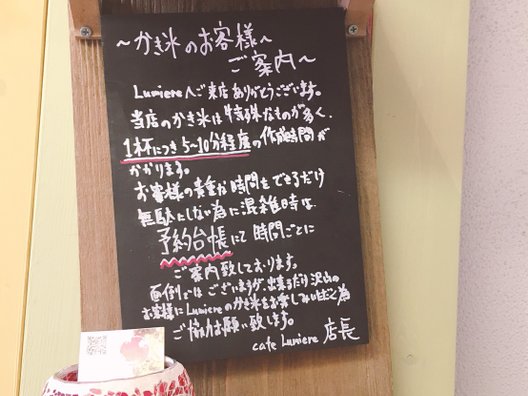 ～かき氷のお客様へ
ご案内～
Lumiereへご来店ありがとうございます。
当店のかき氷は特殊なものが多く、
1杯につき5～10分程度の作成時間が
かかります。
お客様の貴重な時間をできるだけ
無駄としない為に混雑時は、
予約台帳にて時間ごとに
ご案内致しております。
面倒ではございますが、出来るだけ沢山の
お客様にLumiereのかき氷をお楽しみいただく為
ご協力お願い致します。
cafe Lumiere 店長